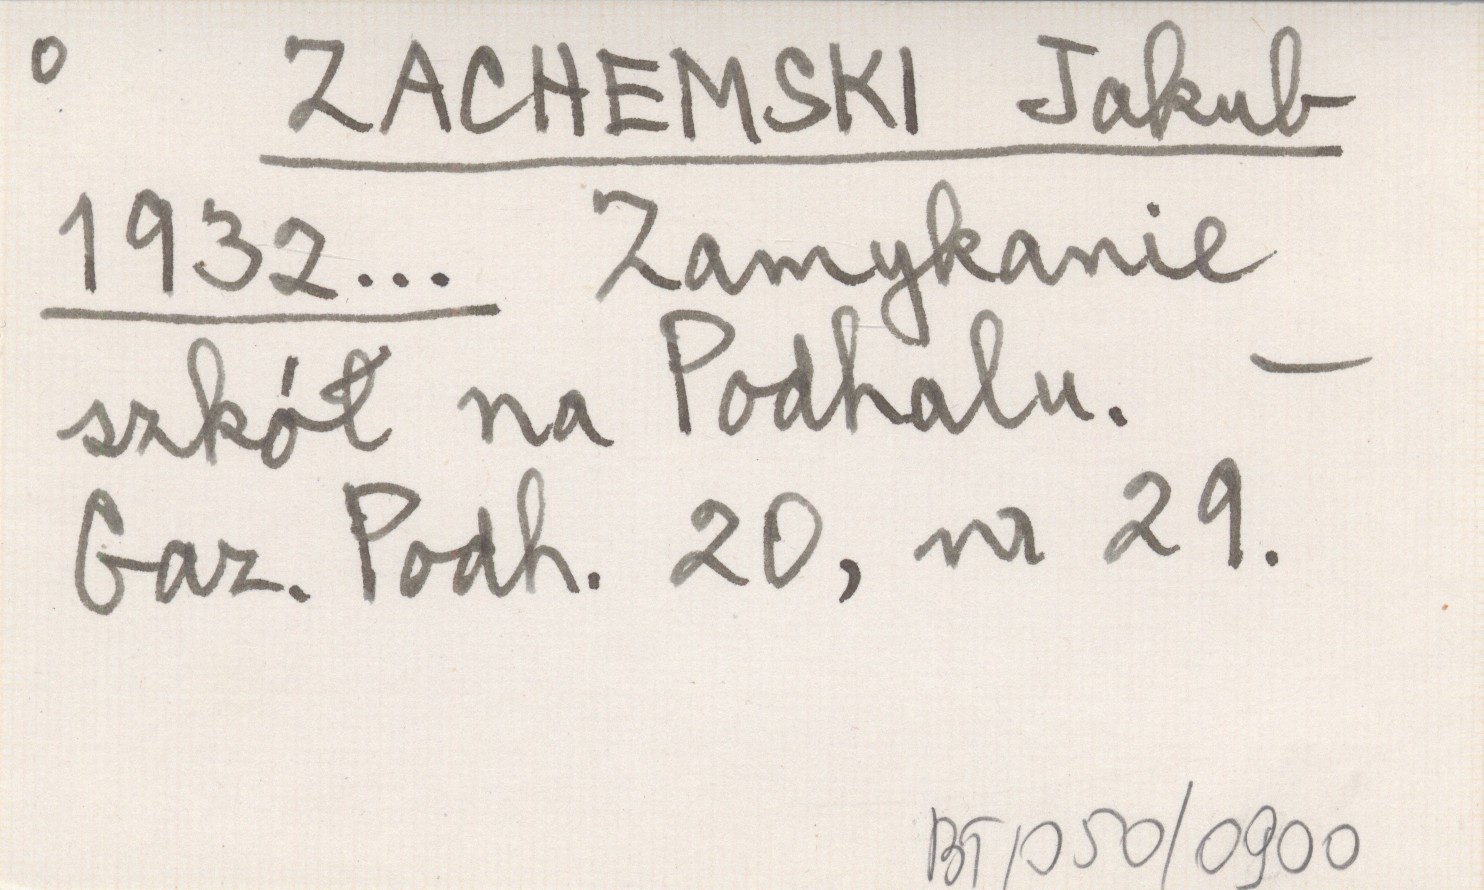 o ZACHEMSKI Jakub
1932... Zamykanie
szkół na Podhalu. —
Gaz. Podh. 20, nr 29.
BT/050/0900